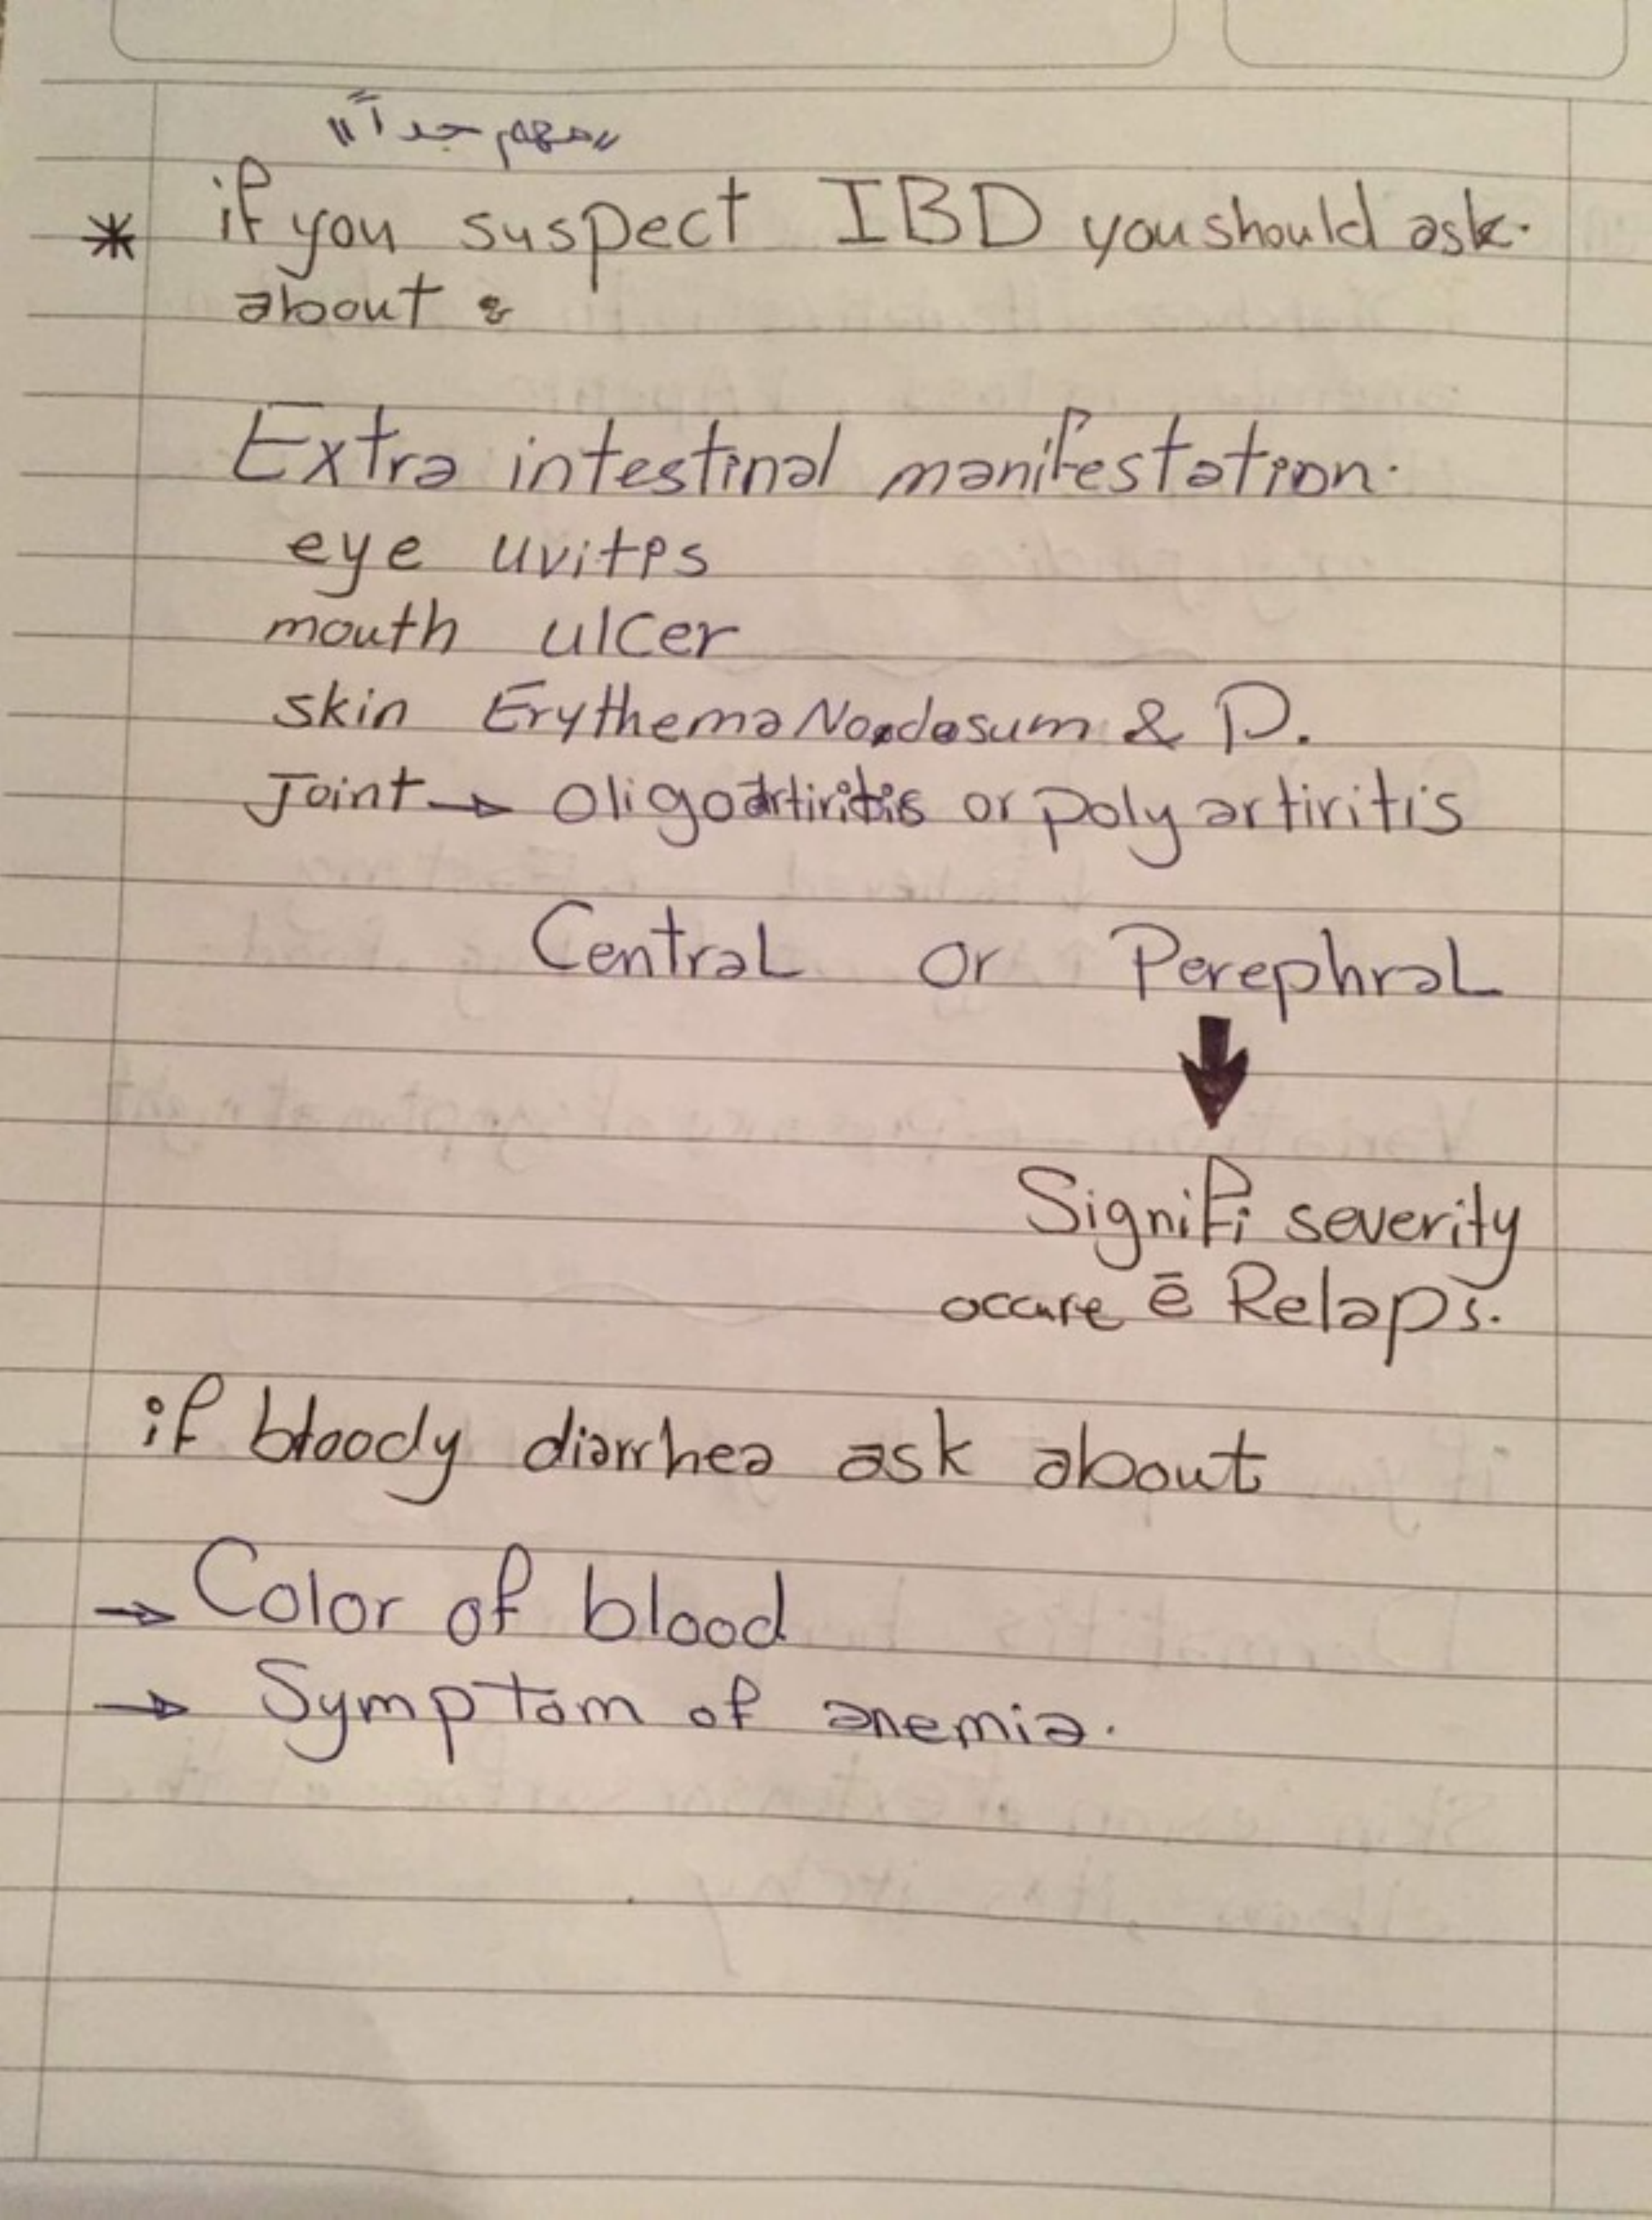 "مهم جداً"
* if you suspect IBD you should ask.
about :
Extra intestinal manifestation.
eye uvitis
mouth ulcer
skin Erythema Nodosum & P.
Joint → oligoartiritis or poly artiritis
Central or Perephral
Signifi severity
occure ē Relaps.
if bloody diarrhea ask about
→ Color of blood
→ Symptom of anemia.